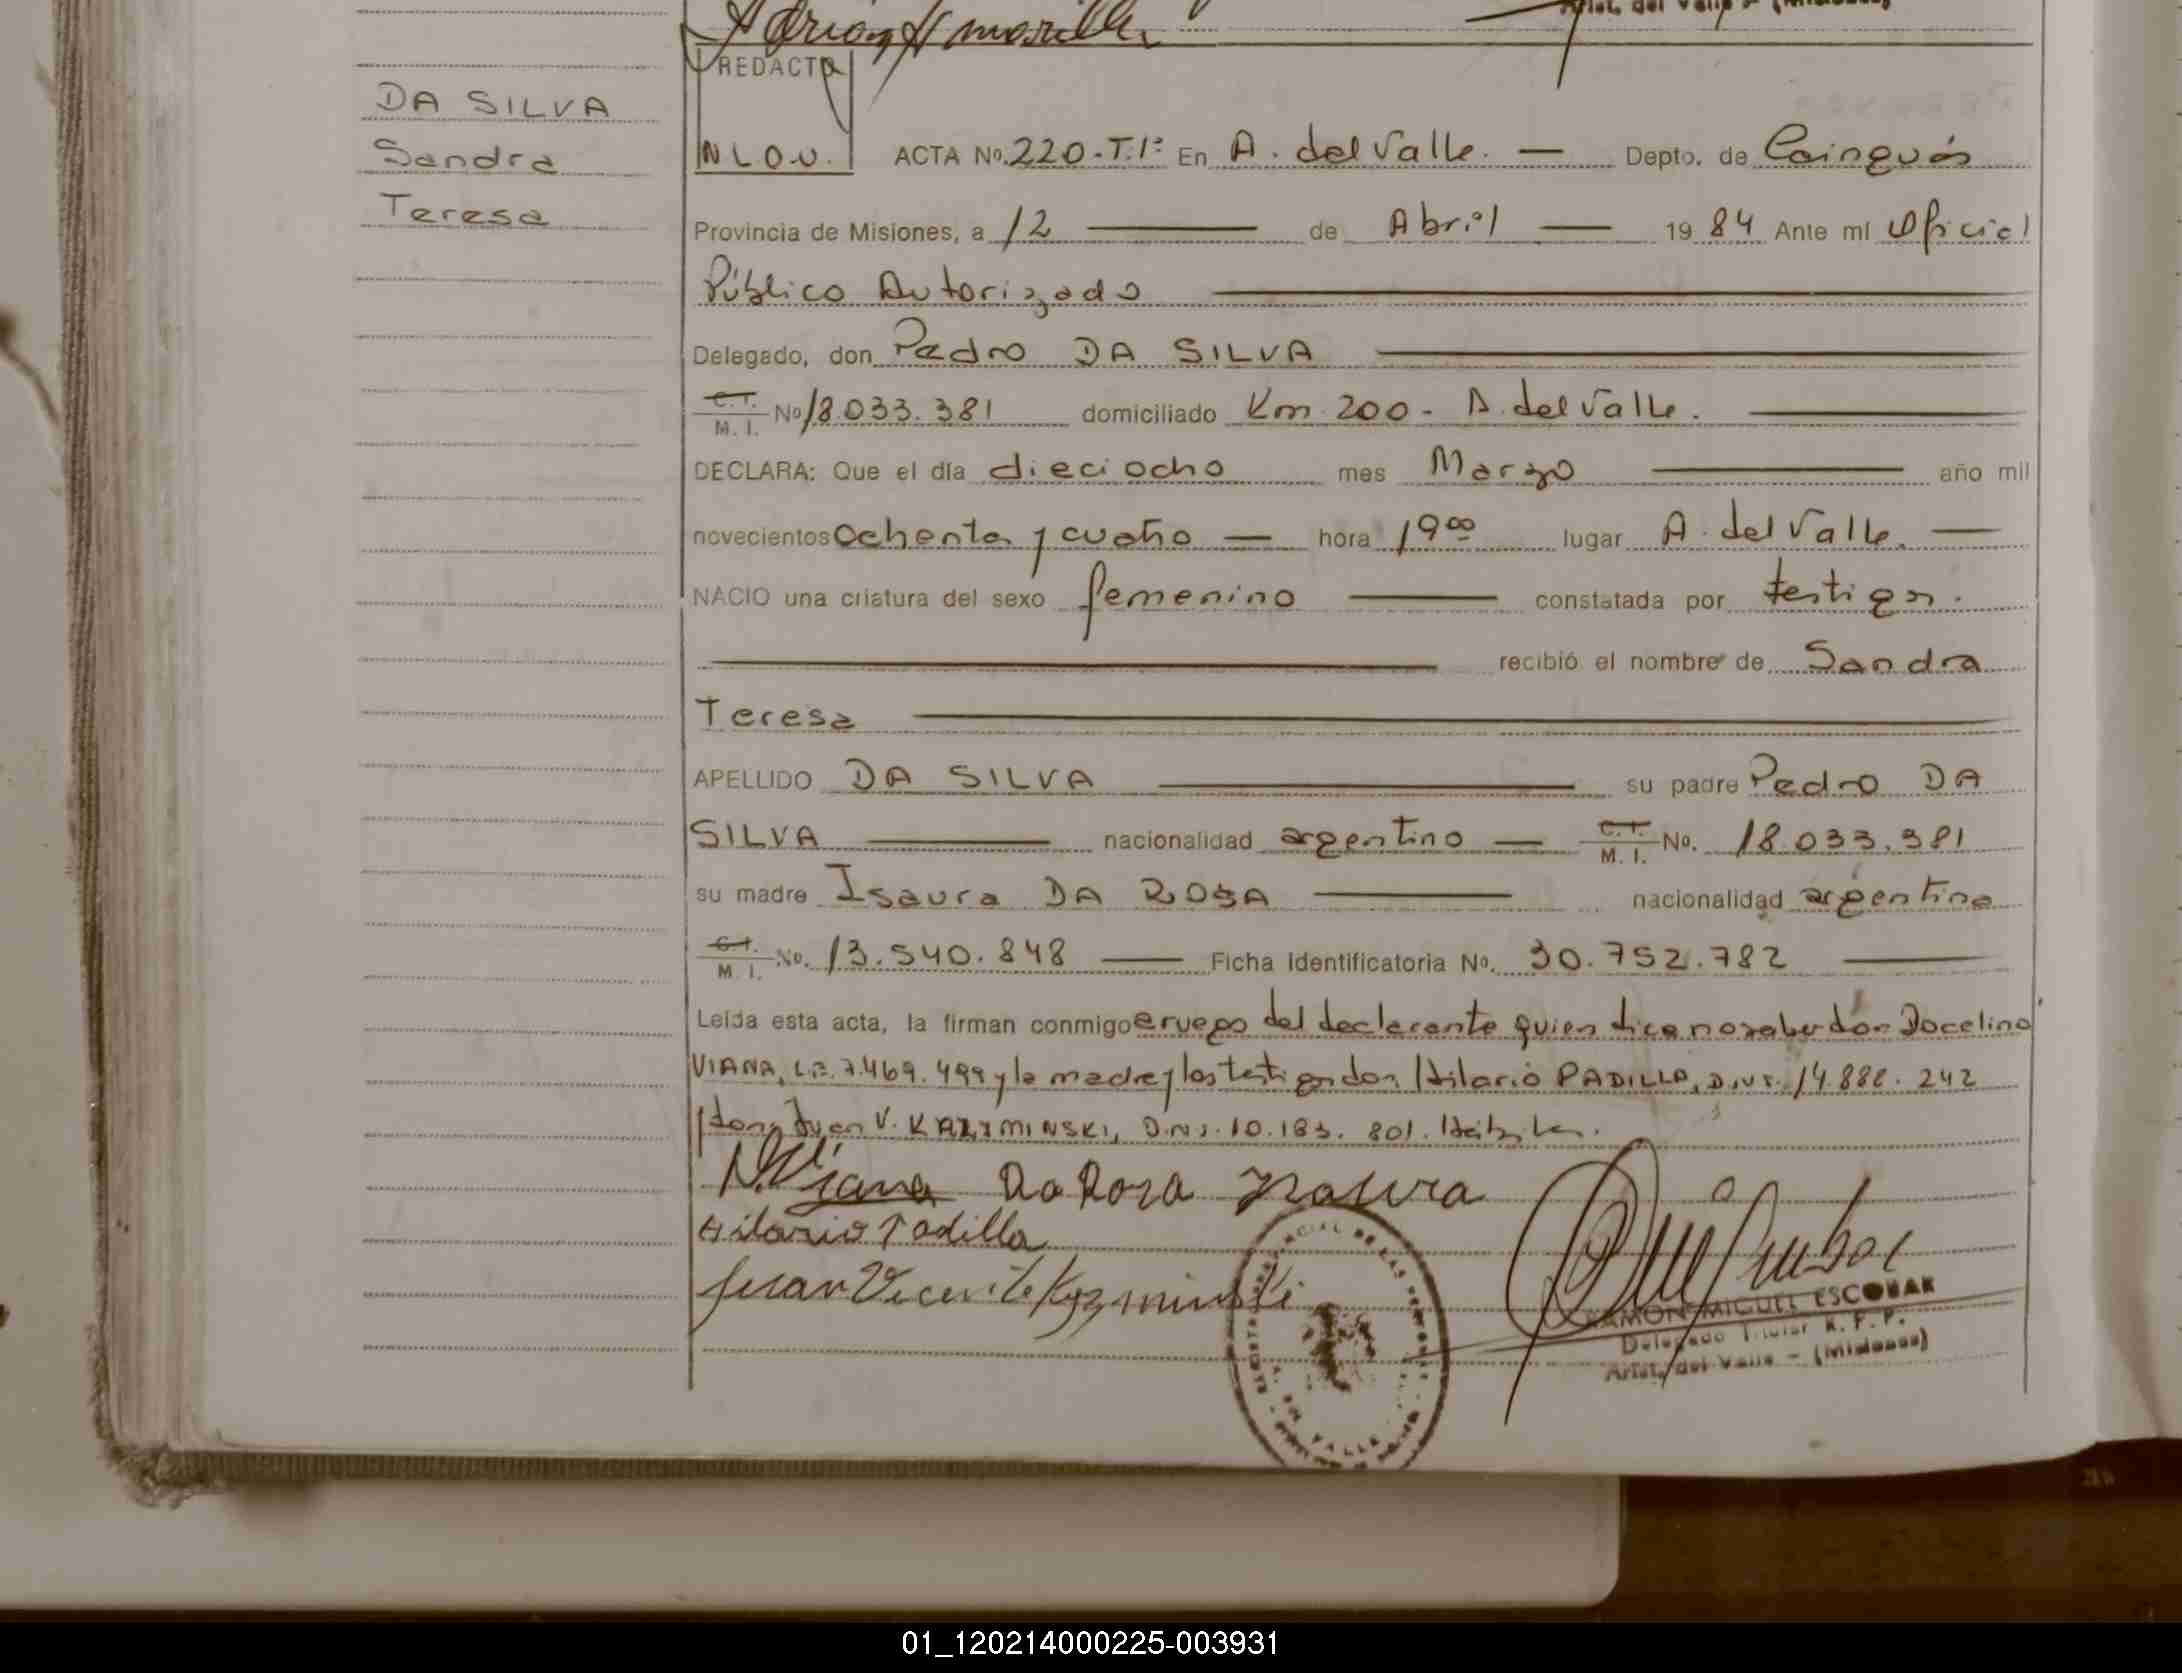 Adrián Amarilla
Arist. del Valle - (Misiones)
REDACTO
DA SILVA
Sandra
Teresa
N L O.U. ACTA No. 220.T.1º En A. del Valle. — Depto. de Cainguás
Provincia de Misiones, a 12 — de Abril — 1984 Ante mi Oficial
Público Autorizado
Delegado, don Pedro DA SILVA
C.I. M. I. No 18.033.381 domiciliado Km 200 - A. del Valle.
DECLARA: Que el día dieciocho mes Marzo — año mil
novecientos ochenta y cuatro — hora 19 00 lugar A. del Valle. —
NACIO una criatura del sexo femenino — constatada por testigos.
recibió el nombre de Sandra
Teresa
APELLIDO DA SILVA — su padre Pedro DA
SILVA — nacionalidad argentino — C.I. M. I. No. 18.033.381
su madre Isaura DA ROSA — nacionalidad argentina
C.I. M. I. No. 13.540.848 — Ficha Identificatoria No. 30.752.782 —
Leída esta acta, la firman conmigo a ruego del declarante quien dice no saber don Docelino
VIANA, L.E. 7.469.499 y la madre y los testigos don Hilario PADILLA, D.N.I. 14.888.242
y don Juan V. KAZYMINSKI, D.N.I. 10.183.801.
N. Viana Da Rosa Isaura
Hilario Padilla
Juan Vicente Kazyminski
RAMON MIGUEL ESCOBAR
Delegado Titular R. P. P.
Arist. del Valle - (Misiones)
01_120214000225-003931